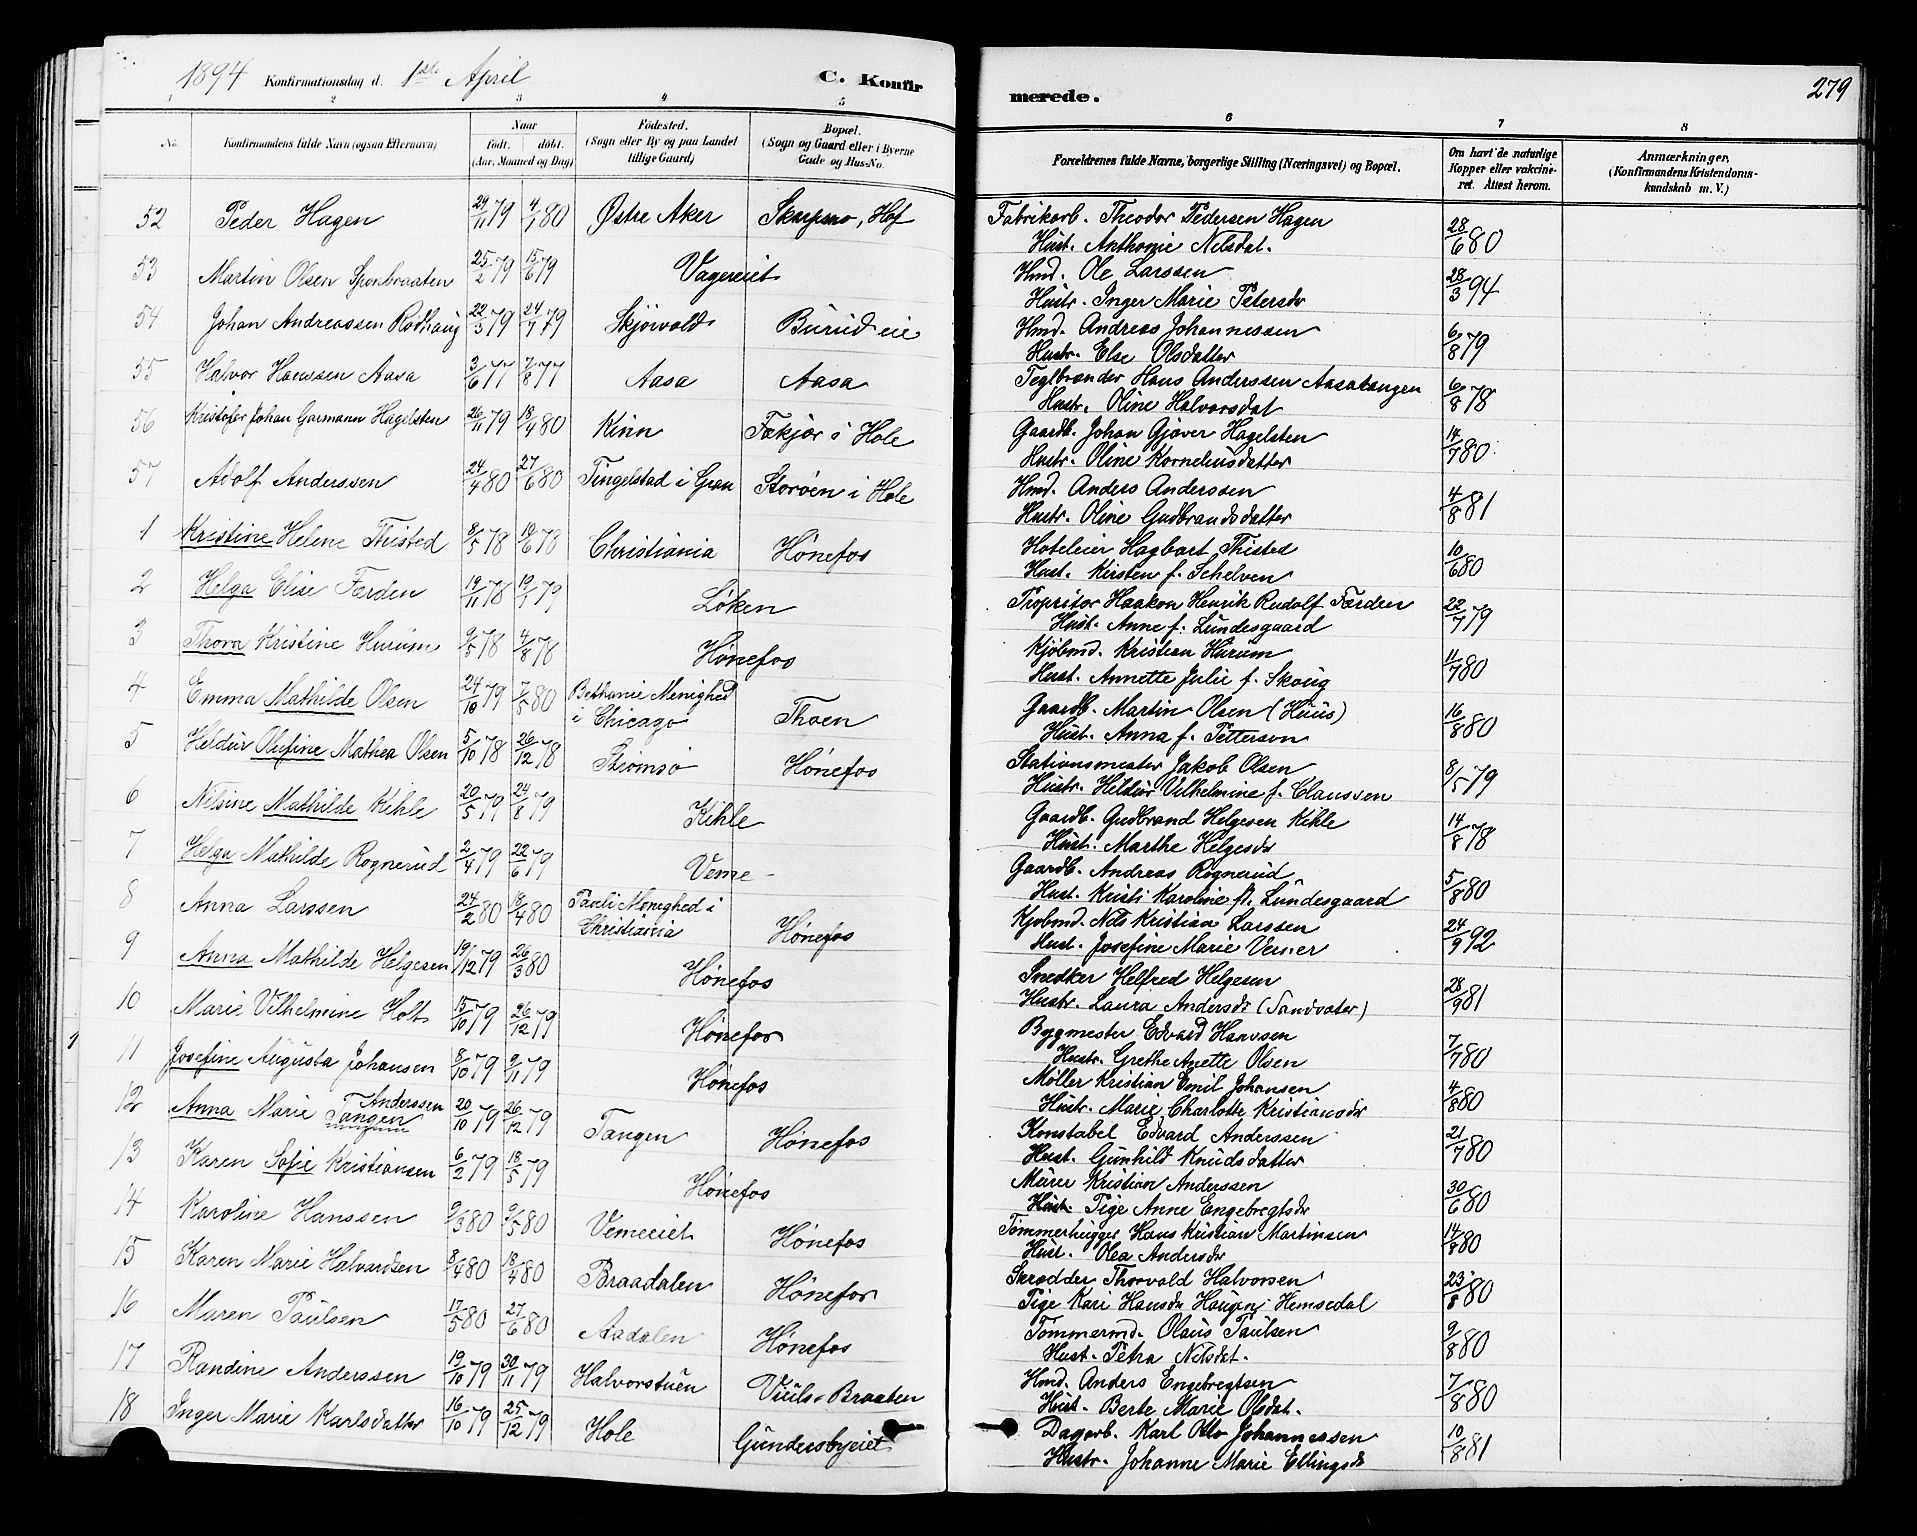 1894 Konfirmationsdag d. 1ste April C. Konfir
merede. 279
1 2 3 4 5 6 7 8
No. Konfirmandens fulde Navn (ogsaa Efternavn) Naar födt. döbt. (Aar, Maaned og Dag) Födested. (Sogn eller By og paa Landet tillige Gaard) Bopæl. (Sogn og Gaard eller i Byerne Gade og Hus-No. Forældrenes fulde Navne, borgerlige Stilling (Næringsvei) og Bopæl. Om havt de naturlige Kopper eller vakcineret. Attest herom. Anmærkninger. (Konfirmandens Kristendomskundskab m. V.)
52 Peder Hagen 29/11 79 4/1 80 Østre Aker Skarpsno, Hof Fabrikarb. Theodor Pedersen Hagen 28/6 80
Hust. Anthonie Nilsdat.
53 Martin Olsen Sponbraaten 25/2 79 15/6 79 Vagereiet Hmd. Ole Larssen 28/3 94
Hustr. Inger Marie Petersdr
54 Johan Andreassen Rødhaug 22/3 79 24/7 79 Skjørvold Burud eie Hmd. Andreas Johannessen 6/8 79
Hustr. Else Olsdatter
55 Halvor Hanssen Aasa 3/6 77 7/8 77 Aasa Aasa Teglbrænder Hans Anderssen Aasatangen 6/8 78
Hustr. Oline Halvorsdat
56 Kristofer Johan Garmann Hagelsten 26/11 79 18/4 80 Kinn Fækjør i Hole Gaardb. Johan Gjøver Hagelsten 14/7 80
Hustr. Oline Korneliusdatter
57 Adolf Anderssen 24/4 80 27/6 80 Tingelstad i Gran Storøen i Hole Hmd. Anders Anderssen 4/8 81
Hustr. Oline Gudbrandsdatter
1 Kristine Helene Thisted 8/5 78 19/6 78 Christiania Hønefos Hoteleier Hagbart Thisted 10/6 80
Hust. Kirsten f. Schelven
2 Helga Elise Færden 19/11 78 19/1 79 Løken Propritør Haakon Henrik Rudolf Færden 22/7 79
Hust. Anne f. Lundesgaard
3 Thora Kristine Hurum 9/5 78 4/8 78 Hønefos Kjøbmd. Kristian Hurum 11/7 80
Hust. Annette Julie f. Skoug
4 Emma Mathilde Olsen 24/10 79 7/5 80 Bethanie Menighed i Chicago Thoen Gaardb. Martin Olsen (Huus) 16/8 80
Hust. Anna f. Petterson
5 Heldur Olufine Mathea Olsen 5/10 78 26/12 78 Strømsø Hønefos Stationsmester Jakob Olsen 8/5 79
Hustr. Heldur Vilhelmine f. Claussen
6 Nilsine Mathilde Kihle 20/5 79 24/8 79 Kihle Gaardb. Gudbrand Helgesen Kihle 14/8 78
Hust. Marthe Helgesdr
7 Helga Mathilde Rognerud 2/4 79 22/6 79 Veme Gaardb. Andreas Rognerud 5/8 80
Hust. Kristi Karoline f. Lundesgaard
8 Anna Larssen 24/2 80 18/4 80 Pauli Menighed i Christiania Hønefos Kjøbmd. Nils Kristian Larssen 24/9 92
Hust. Josefine Marie Verner
9 Anna Mathilde Helgesen 19/12 79 26/3 80 Hønefos Snedker Helfred Helgesen 28/9 81
Hustr. Laura Andersdr (Sandvater)
10 Marie Vilhelmine Holt 15/10 79 26/12 79 Hønefos Bygmester Edvard Hanssen 7/7 80
Hustr. Grethe Anette Olsen
11 Josefine Augusta Johansen 8/10 79 9/11 79 Hønefos Møller Kristian Emil Johansen 4/8 80
Hustr. Marie Charlotte Kristiansdr
12 Anna Marie Anderssen Tangen 20/10 79 26/12 79 Tangen Hønefos Konstabel Edvard Anderssen 21/7 80
Hust. Gunhild Knudsdatter
13 Karen Sofie Kristiansen 6/2 79 18/5 79 Hønefos Murer Kristian Anderssen 30/6 80
Hust. Pige Anne Engebregtsdr
14 Karoline Hanssen 9/3 80 9/5 80 Vemeeiet Hønefos Tømmerhugger Hans Kristian Martinsen 14/8 80
Hust. Olea Andersdr
15 Karen Marie Halvardsen 8/4 80 18/4 80 Braadalen Hønefos Skrædder Thorvald Halvorsen 23/8 80
Pige Kari Hansdr Haugen Hemsedal
16 Maren Paulsen 17/5 80 27/6 80 Aadalen Hønefos Tømmermd. Olaus Paulsen 9/8 80
Hust. Petra Nilsdat.
17 Randine Anderssen 19/10 79 30/11 79 Halvorstuen Viuls-Braaten Hmd. Anders Engebregtsen 7/8 80
Hust. Berte Marie Olsdat.
18 Inger Marie Karlsdatter 16/10 79 25/12 79 Hole Gundersbyeiet Dagarb. Karl Otto Johannessen 10/8 81
Hustr. Johanne Marie Ellingsdr